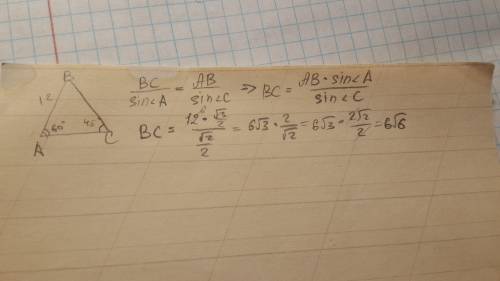 B
12
60°
45
A
C
BC/sin∠A = AB/sin∠C => BC = AB · sin∠A/sin∠C
BC = 12⁶ · √3/2/√2/2 = 6√3 · 2/√2 = 6√3 · 2√2/2 = 6√6